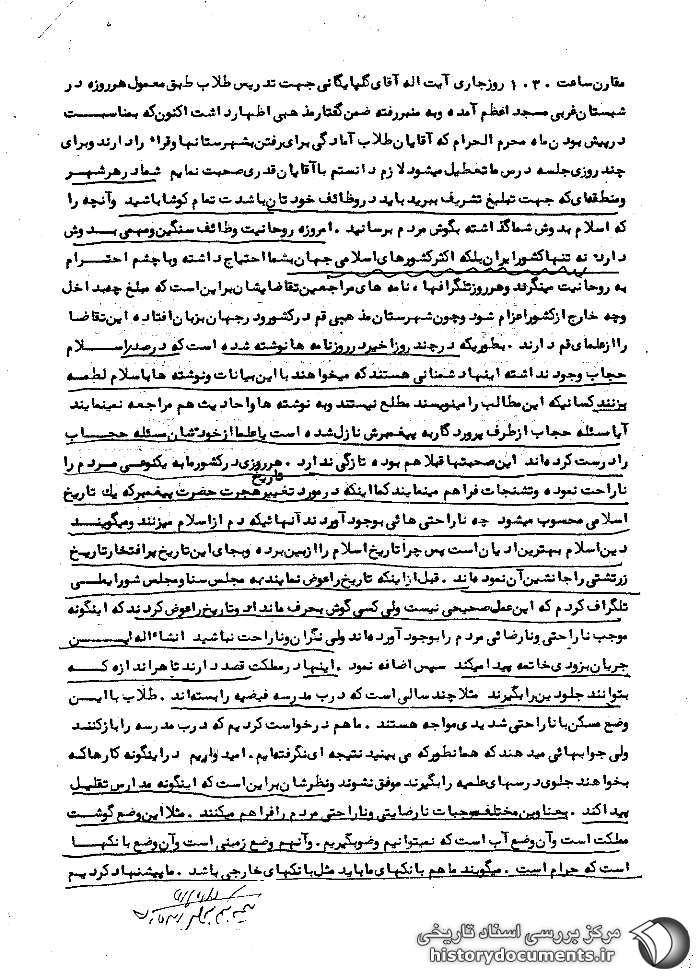 مقارن ساعت ۱۰۳۰ روز جاری آیت اله آقای گلپایگانی جهت تدریس طلاب طبق معمول هرروزه در
شبستان غربی مسجد اعظم آمده و به منبر رفته ضمن گفتار مذهبی اظهار داشت اکنون که بمناسبت
در پیش بودن ماه محرم الحرام که آقایان طلاب آمادگی برای رفتن بشهرستانها و قراء را دارند و برای
چند روزی جلسه درس ما تعطیل میشود لازم دانستم با آقایان قدری صحبت نمایم شما در هر شهر
و منطقه‌ای که جهت تبلیغ تشریف ببرید باید در وظائف خودتان باشدت تمام کوشا باشید و آنچه را
که اسلام بدوش شما گذاشته بگوش مردم برسانید . امروزه روحانیت وظائف سنگین و مهمی بدوش
دارد نه تنها کشور ایران بلکه اکثر کشورهای اسلامی جهان بشما احتیاج داشته و با چشم احترام
به روحانیت مینگرند و هر روز تلگرافها، نامه های مراجعین تقاضایشان براین است که مبلغ چه بداخل
و چه خارج از کشور اعزام شود و چون شهرستان مذهبی قم در کشور و در جهان بزبان افتاده این تقاضا
را از علمای قم دارند . بطوریکه در چند روز اخیر در روزنامه ها نوشته شده است که در صدر اسلام
حجاب وجود نداشته اینها دشمنانی هستند که میخواهند با این بیانات و نوشته ها باسلام لطمه
بزنند کسانیکه این مطالب را مینویسند مطلع نیستند و به نوشته ها و احادیث هم مراجعه نمینمایند
آیا مسئله حجاب از طرف پرورد گار به پیغمبرش نازل شده است یا علما از خودشان مسئله حجاب
را درست کرده‌اند این صحبتها قبلا هم بوده تازگی ندارد . هر روزی در کشور ما به یکنوعی مردم را
ناراحت نموده و تشنجات فراهم مینمایند کما اینکه در مورد تغییر تاریخ هجرت حضرت پیغمبر که یک تاریخ
اسلامی محسوب میشود چه ناراحتی هائی بوجود آوردند آنهائیکه دم از اسلام میزنند و میگویند
دین اسلام بهترین ادیان است پس چرا تاریخ اسلام را از بین برده و بجای این تاریخ پر افتخار تاریخ
زرتشتی را جانشین آن نموده‌اند . قبل از اینکه تاریخ را عوض نمایند به مجلس سنا و مجلس شورا
تلگراف کردم که این عمل صحیحی نیست ولی کسی گوش بحرف ما نداد و تاریخ را عوض کردند که اینگونه
موجب ناراحتی و نارضائی مردم را بوجود آورده‌اند ولی نگران و ناراحت نباشید انشاءاله این
جریان بزودی خاتمه پیدا میکند سپس اضافه نمود . اینها در مملکت قصد دارند تا هر اندازه که
بتوانند جلو دین را بگیرند مثلا چند سالی است که درب مدرسه فیضیه را بسته‌اند . طلاب با این
وضع مسکن با ناراحتی شدیدی مواجه هستند . ما هم درخواست کردیم که درب مدرسه را باز کنند
ولی جوابهائی میدهند که همانطور که می بینید نتیجه ای نگرفته‌ایم . امیدواریم در اینگونه کارها که
بخواهند جلوی درسهای علمیه را بگیرند موفق نشوند و نظرشان براین است که اینگونه مدارس تقلیل
پیدا کند . بعناوین مختلف موجبات نارضایتی و ناراحتی مردم را فراهم میکنند . مثلا این وضع گوشت
مملکت است و آن وضع آب است که نمیتوانیم وضو بگیریم . و آنهم وضع زمینی است و آن وضع بانکها
است که حرام است . میگویند ما هم بانکهای ما باید مثل بانکهای خارجی باشد . ما پیشنهاد کردیم
مرکز بررسی اسناد تاریخی
historydocuments.ir